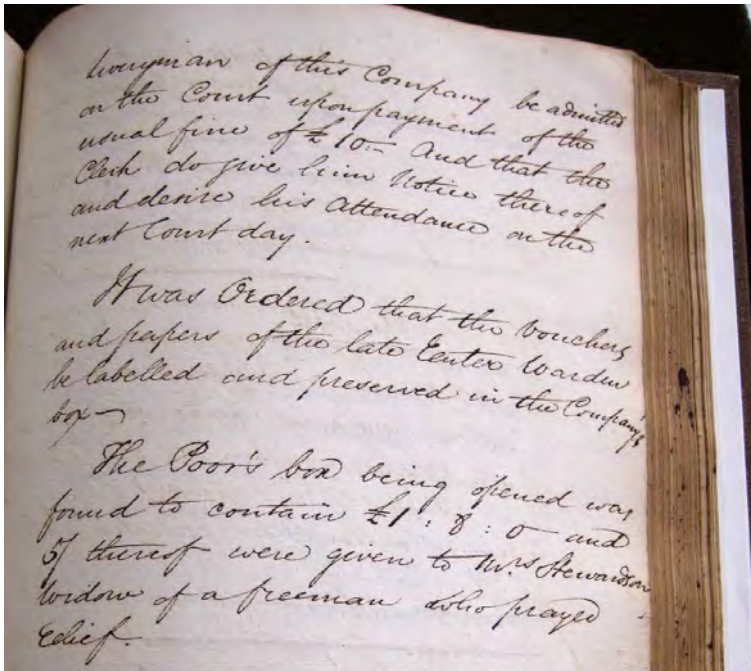 liveryman of this Company be admitted
on the Court upon payment of the
usual fine of £10:– And that the
Clerk do give him Notice thereof
and desire his Attendance on the
next Court day.
It was Ordered that the Vouchers
and papers of the late Renter Warden
be labelled and preserved in the Company's
box–
The Poor's box being opened was
found to contain £1 : 8 : 0 and
5/ thereof were given to Mrs Stewardson
widow of a freeman who prayed
relief.